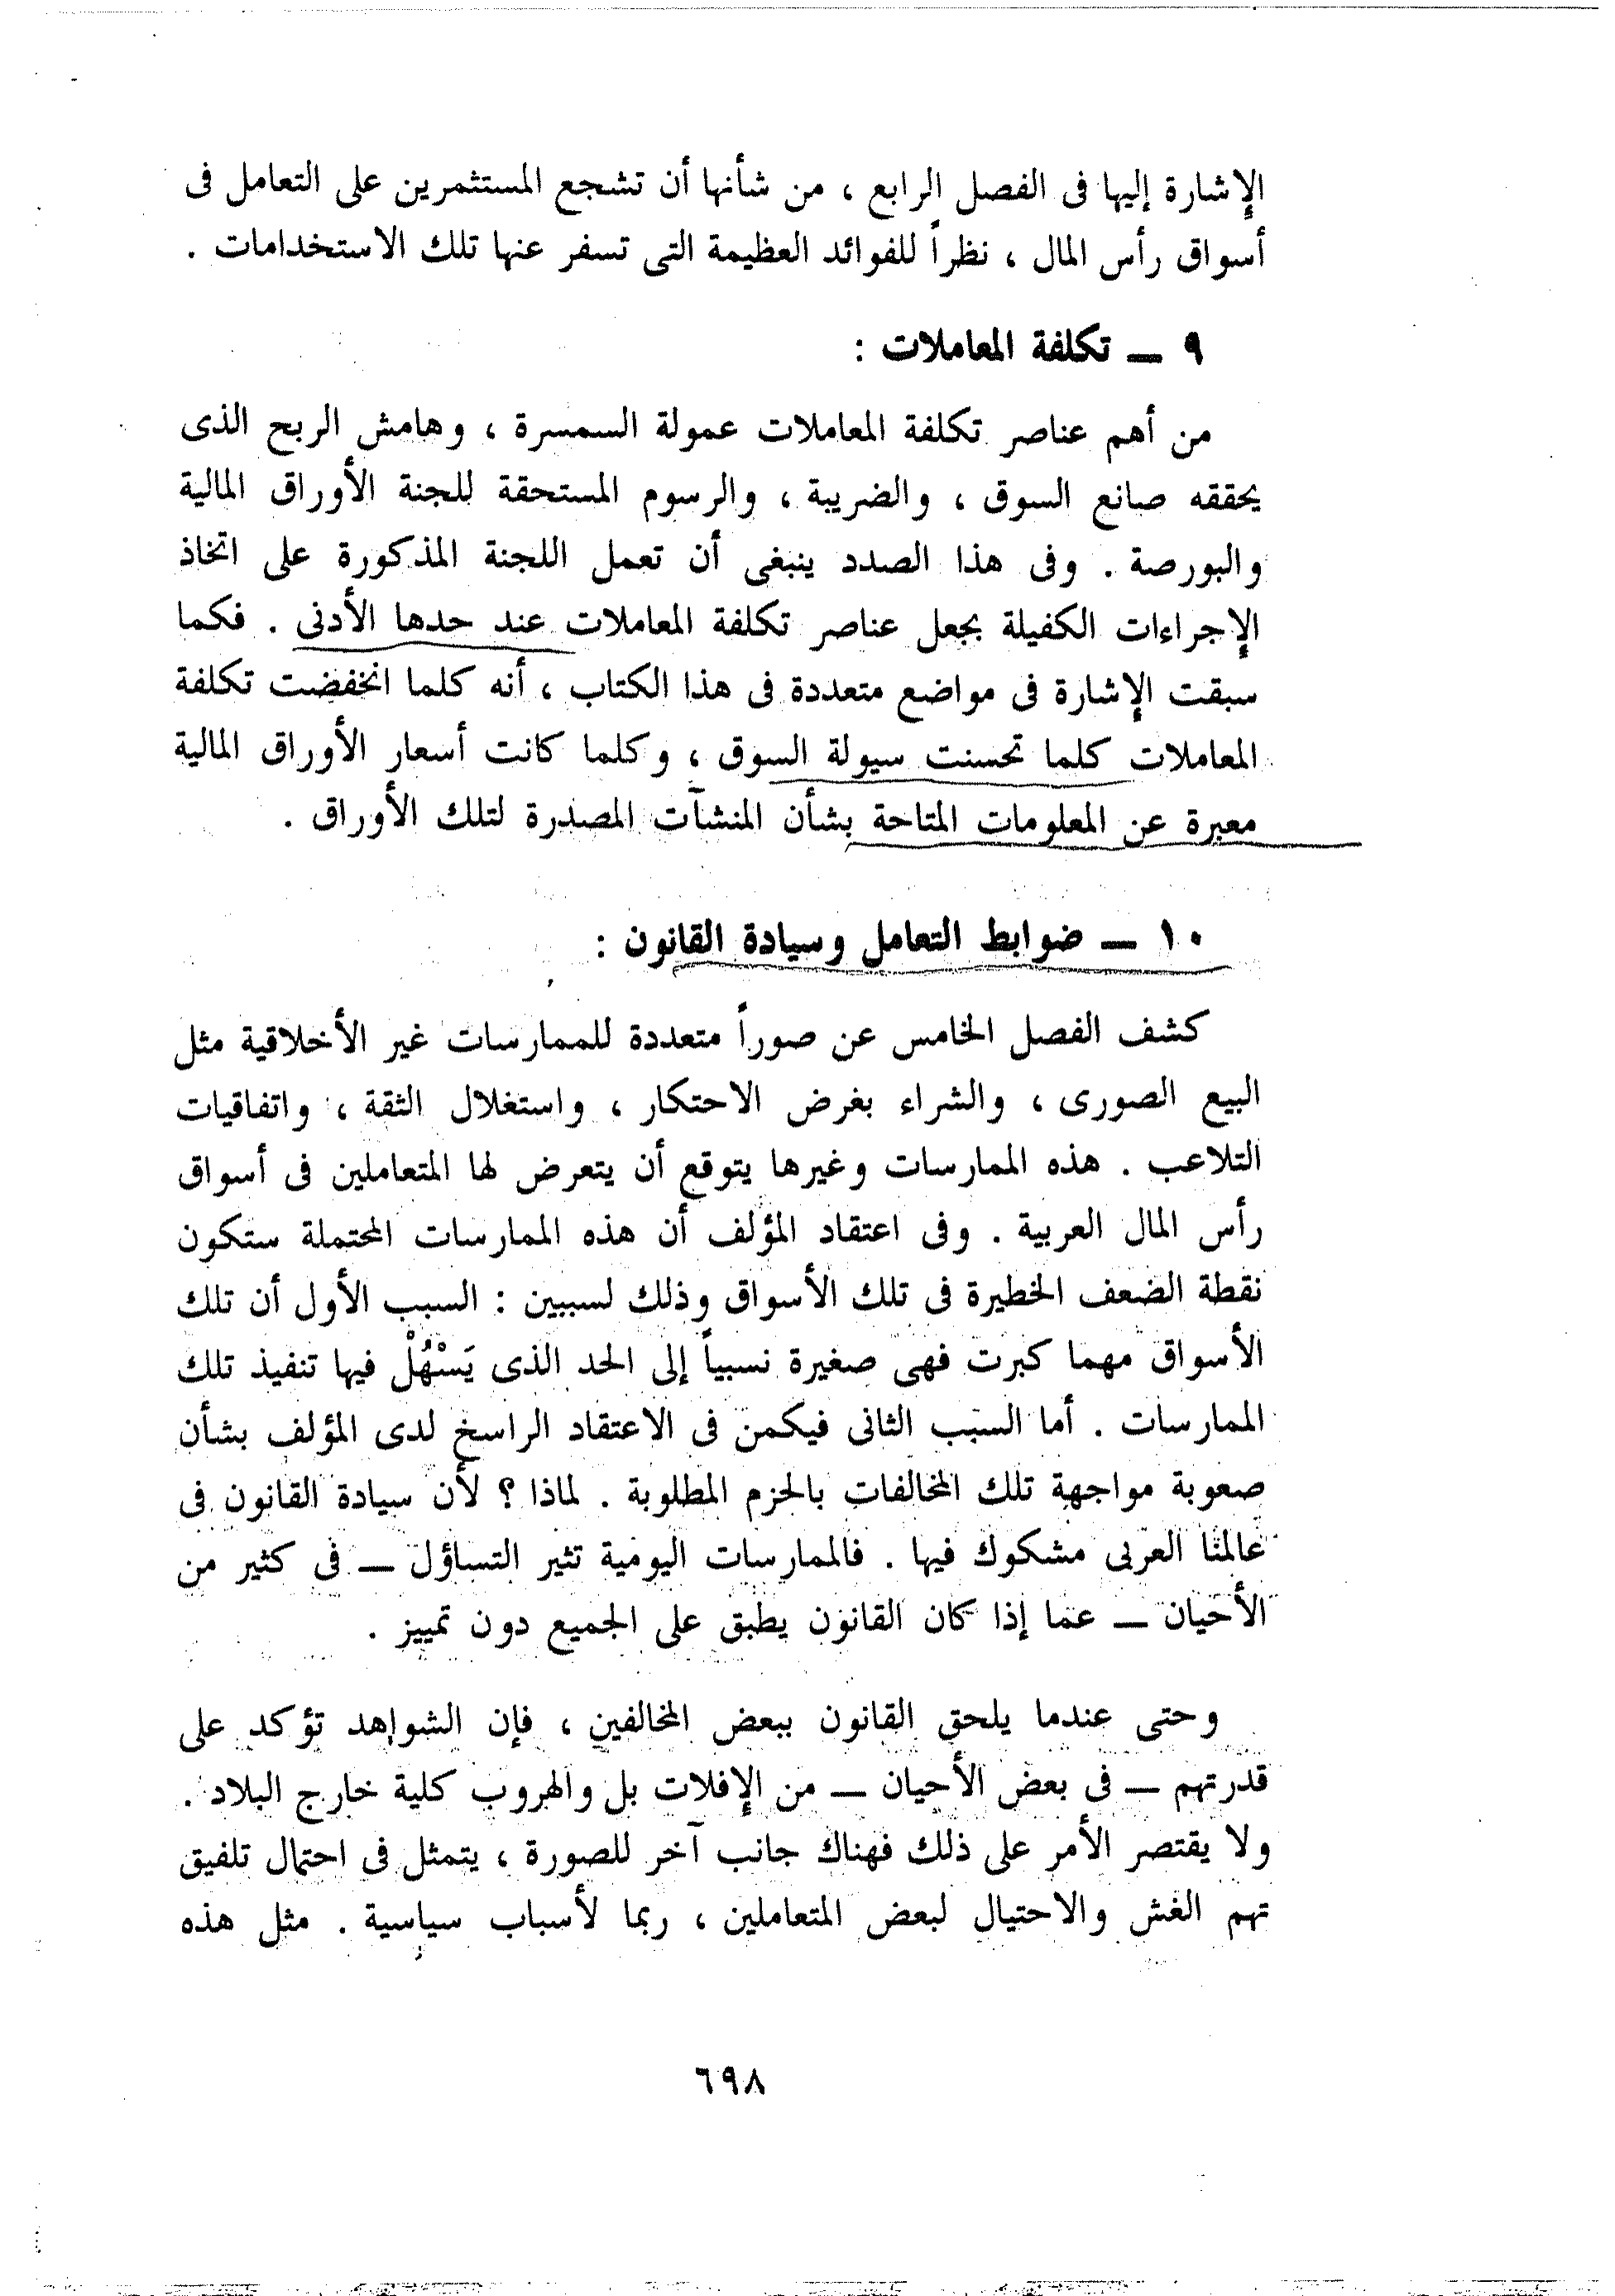 الإشارة إليها فى الفصل الرابع ، من شأنها أن تشجع المستثمرين على التعامل فى
أسواق رأس المال ، نظراً للفوائد العظيمة التى تسفر عنها تلك الاستخدامات .
٩ ــ تكلفة المعاملات :
من أهم عناصر تكلفة المعاملات عمولة السمسرة ، وهامش الربح الذى
يحققه صانع السوق ، والضريبة ، والرسوم المستحقة للجنة الأوراق المالية
والبورصة . وفى هذا الصدد ينبغى أن تعمل اللجنة المذكورة على اتخاذ
الإجراءات الكفيلة بجعل عناصر تكلفة المعاملات عند حدها الأدنى . فكما
سبقت الإشارة فى مواضع متعددة فى هذا الكتاب ، أنه كلما انخفضت تكلفة
المعاملات كلما تحسنت سيولة السوق ، وكلما كانت أسعار الأوراق المالية
معبرة عن المعلومات المتاحة بشأن المنشآت المصدرة لتلك الأوراق .
١٠ ــ ضوابط التعامل وسيادة القانون :
كشف الفصل الخامس عن صوراً متعددة للممارسات غير الأخلاقية مثل
البيع الصورى ، والشراء بغرض الاحتكار ، واستغلال الثقة ، واتفاقيات
التلاعب . هذه الممارسات وغيرها يتوقع أن يتعرض لها المتعاملين فى أسواق
رأس المال العربية . وفى اعتقاد المؤلف أن هذه الممارسات المحتملة ستكون
نقطة الضعف الخطيرة فى تلك الأسواق وذلك لسببين : السبب الأول أن تلك
الأسواق مهما كبرت فهى صغيرة نسبياً إلى الحد الذى يَسْهُلْ فيها تنفيذ تلك
الممارسات . أما السبب الثانى فيكمن فى الاعتقاد الراسخ لدى المؤلف بشأن
صعوبة مواجهة تلك المخالفات بالحزم المطلوبة . لماذا ؟ لأن سيادة القانون فى
عالمنا العربى مشكوك فيها . فالممارسات اليومية تثير التساؤل ــ فى كثير من
الأحيان ــ عما إذا كان القانون يطبق على الجميع دون تمييز .
وحتى عندما يلحق القانون ببعض المخالفين ، فإن الشواهد تؤكد على
قدرتهم ــ فى بعض الأحيان ــ من الإفلات بل والهروب كلية خارج البلاد .
ولا يقتصر الأمر على ذلك فهناك جانب آخر للصورة ، يتمثل فى احتمال تلفيق
تهم الغش والاحتيال لبعض المتعاملين ، ربما لأسباب سياسية . مثل هذه
٦٩٨